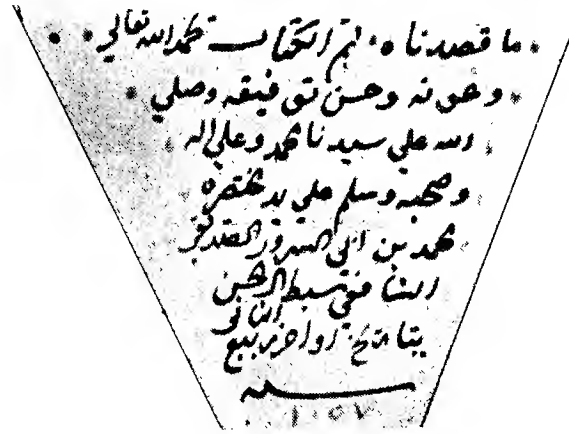 ما قصدناه. تم الكتاب بحمد الله تعالى
وعونه وحسن توفيقه وصلي
الله علي سيدنا محمد وعلي اله
وصحبه وسلم علي يد مختصره
محمد بن ابي السرور الصديقي
الشافعي سبط ال الحسن
بتاريخ اواخر ربيع الثاني
سنة
١٠٥٧